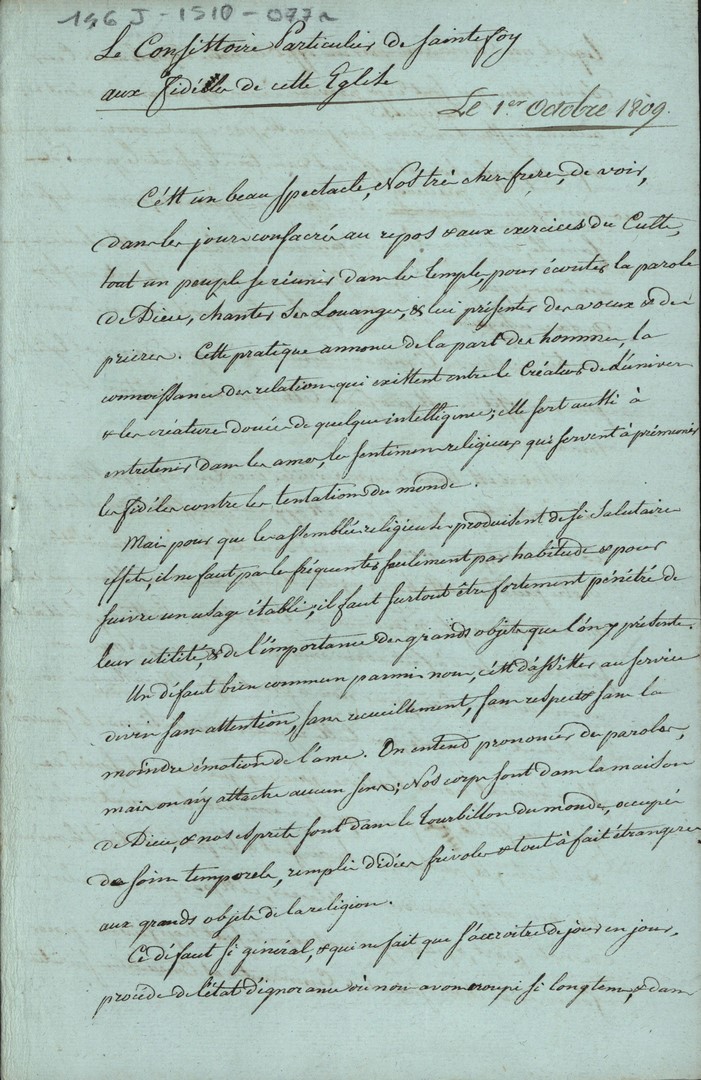 146 J - 1S10 - 077a
Le Consistoire Particulier de Sainte foy
aux fidéles de cette Eglise
Le 1er Octobre 1809.
C'est un beau spectacle, Nos très chers freres, de voir,
dans les jours consacrés au repos & aux exercices du Culte,
tout un peuple se réunir dans les temples, pour écouter la parole
de Dieu, chanter ses Louanges, & lui présenter des voeux & des
prieres. Cette pratique annonce de la part des hommes, la
connoissance des relations qui existent entre le Créateur de L'univers
& les créatures douées de quelque intelligence; elle sert aussi à
entretenir dans les ames, les sentimens religieux qui servent à prémunir
les fidéles contre les tentations du monde.
Mais pour que les assemblées religieuses produisent de si salutaires
effets, il ne faut pas les fréquenter seulement par habitude & pour
suivre un usage établi; il faut surtout être fortement pénétré de
leur utilité, & de l'importance des grands objets que l'on y présente.
Un défaut bien commun parmi nous, c'est d'assister au service
divin sans attention, sans recueillement, sans respect & sans la
moindre émotion de l'ame. On entend prononcer des paroles,
mais on n'y attache aucun sens; Nos corps sont dans la maison
de Dieu, & nos esprits sont dans le tourbillon du monde, occupés
de soins temporels, remplis d'idées frivoles & tout à fait étrangeres
aux grands objets de la religion.
Ce défaut si général, & qui ne fait que s'accroitre de jour en jour,
procéde de l'état d'ignorance où nous avons croupi si longtems, & dans